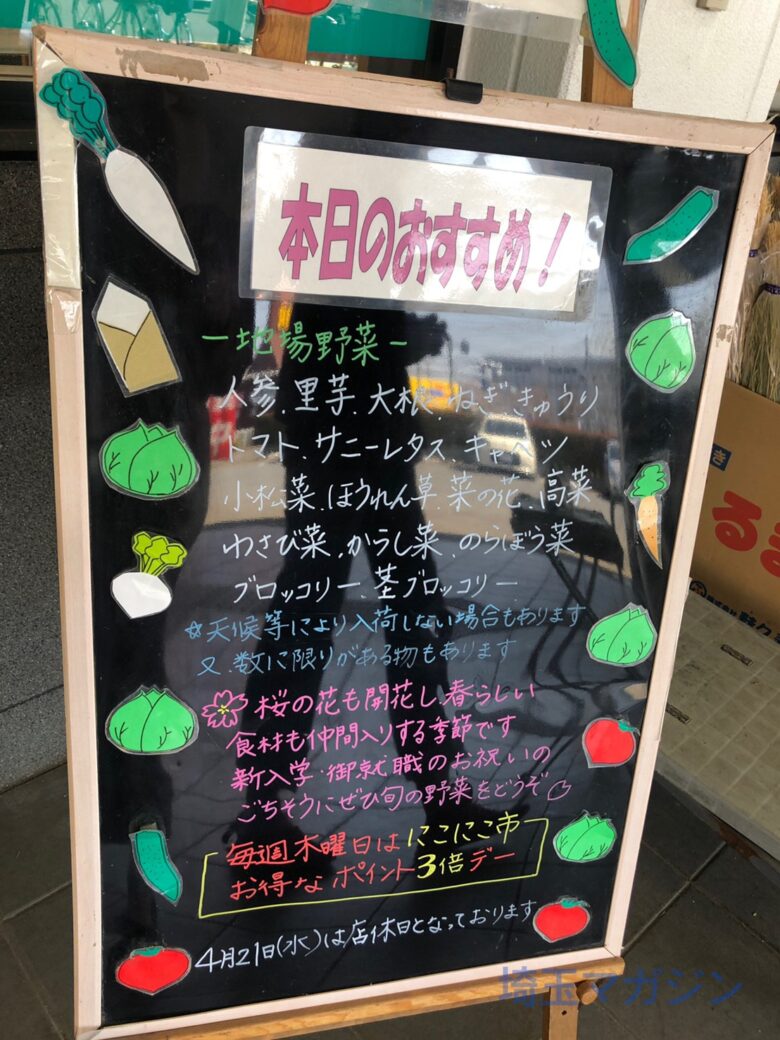 本日のおすすめ!
ー地場野菜ー
人参、里芋、大根、ねぎ、きゅうり
トマト、サニーレタス、キャベツ
小松菜、ほうれん草、菜の花、高菜
わさび菜、からし菜、のらぼう菜
ブロッコリー、茎ブロッコリー
☆天候等により入荷しない場合もあります
又、数に限りがある物もあります
桜の花も開花し、春らしい
食材も仲間入りする季節です
新入学・御就職のお祝いの
ごちそうにぜひ旬の野菜をどうぞ
毎週木曜日はにこにこ市
お得なポイント3倍デー
4月21日(水)は店休日となっております
き
るま
埼玉マガジン